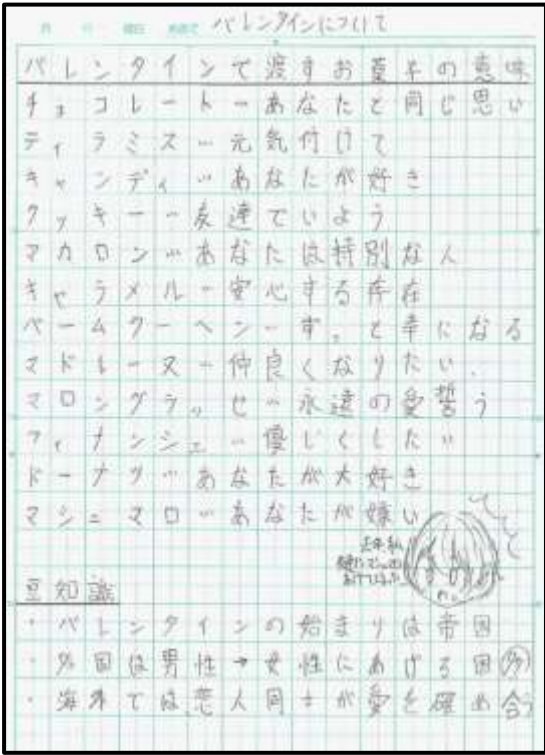 月 日 曜日 めあて バレンタインについて
バレンタインで渡すお菓子の意味
チョコレート…あなたと同じ思い
ティラミス…元気付けて
キャンディ…あなたが好き
クッキー…友達でいよう
マカロン…あなたは特別な人
キャラメル…安心する存在
バームクーヘン…ずっと幸になる
マドレーヌ…仲良くなりたい
マロングラッセ…永遠の愛誓う
フィナンシェ…優しくしたい
ドーナツ…あなたが大好き
マシュマロ…あなたが嫌い
去年私
豆知識
・バレンタインの始まりは帝国
・外国は男性→女性にあげる国多
・海外では恋人同士が愛を確め合う